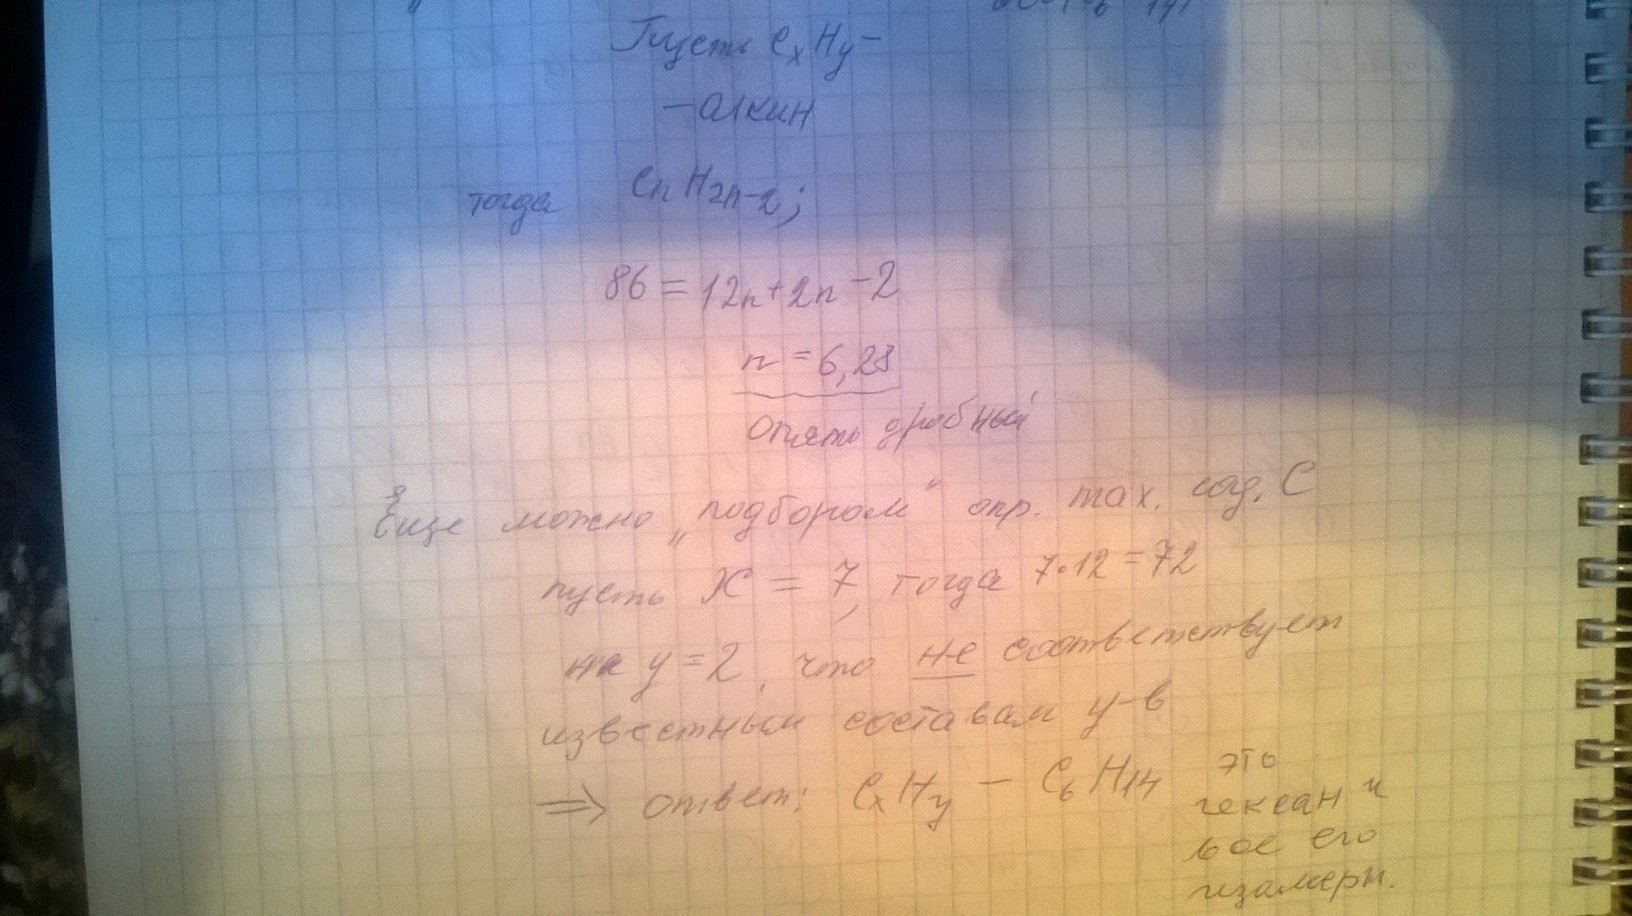 Пусть CxHy –
– алкин
тогда CnH2n-2;
86 = 12n + 2n - 2
n = 6,28
опять дробный
Еще можно „подбором" опр. max. сод. C
пусть X = 7, тогда 7·12 = 72
на y = 2, что не соответствует
известным составам у-в
⇒ ответ: CxHy – C6H14 это
гексан и
все его
изамеры.